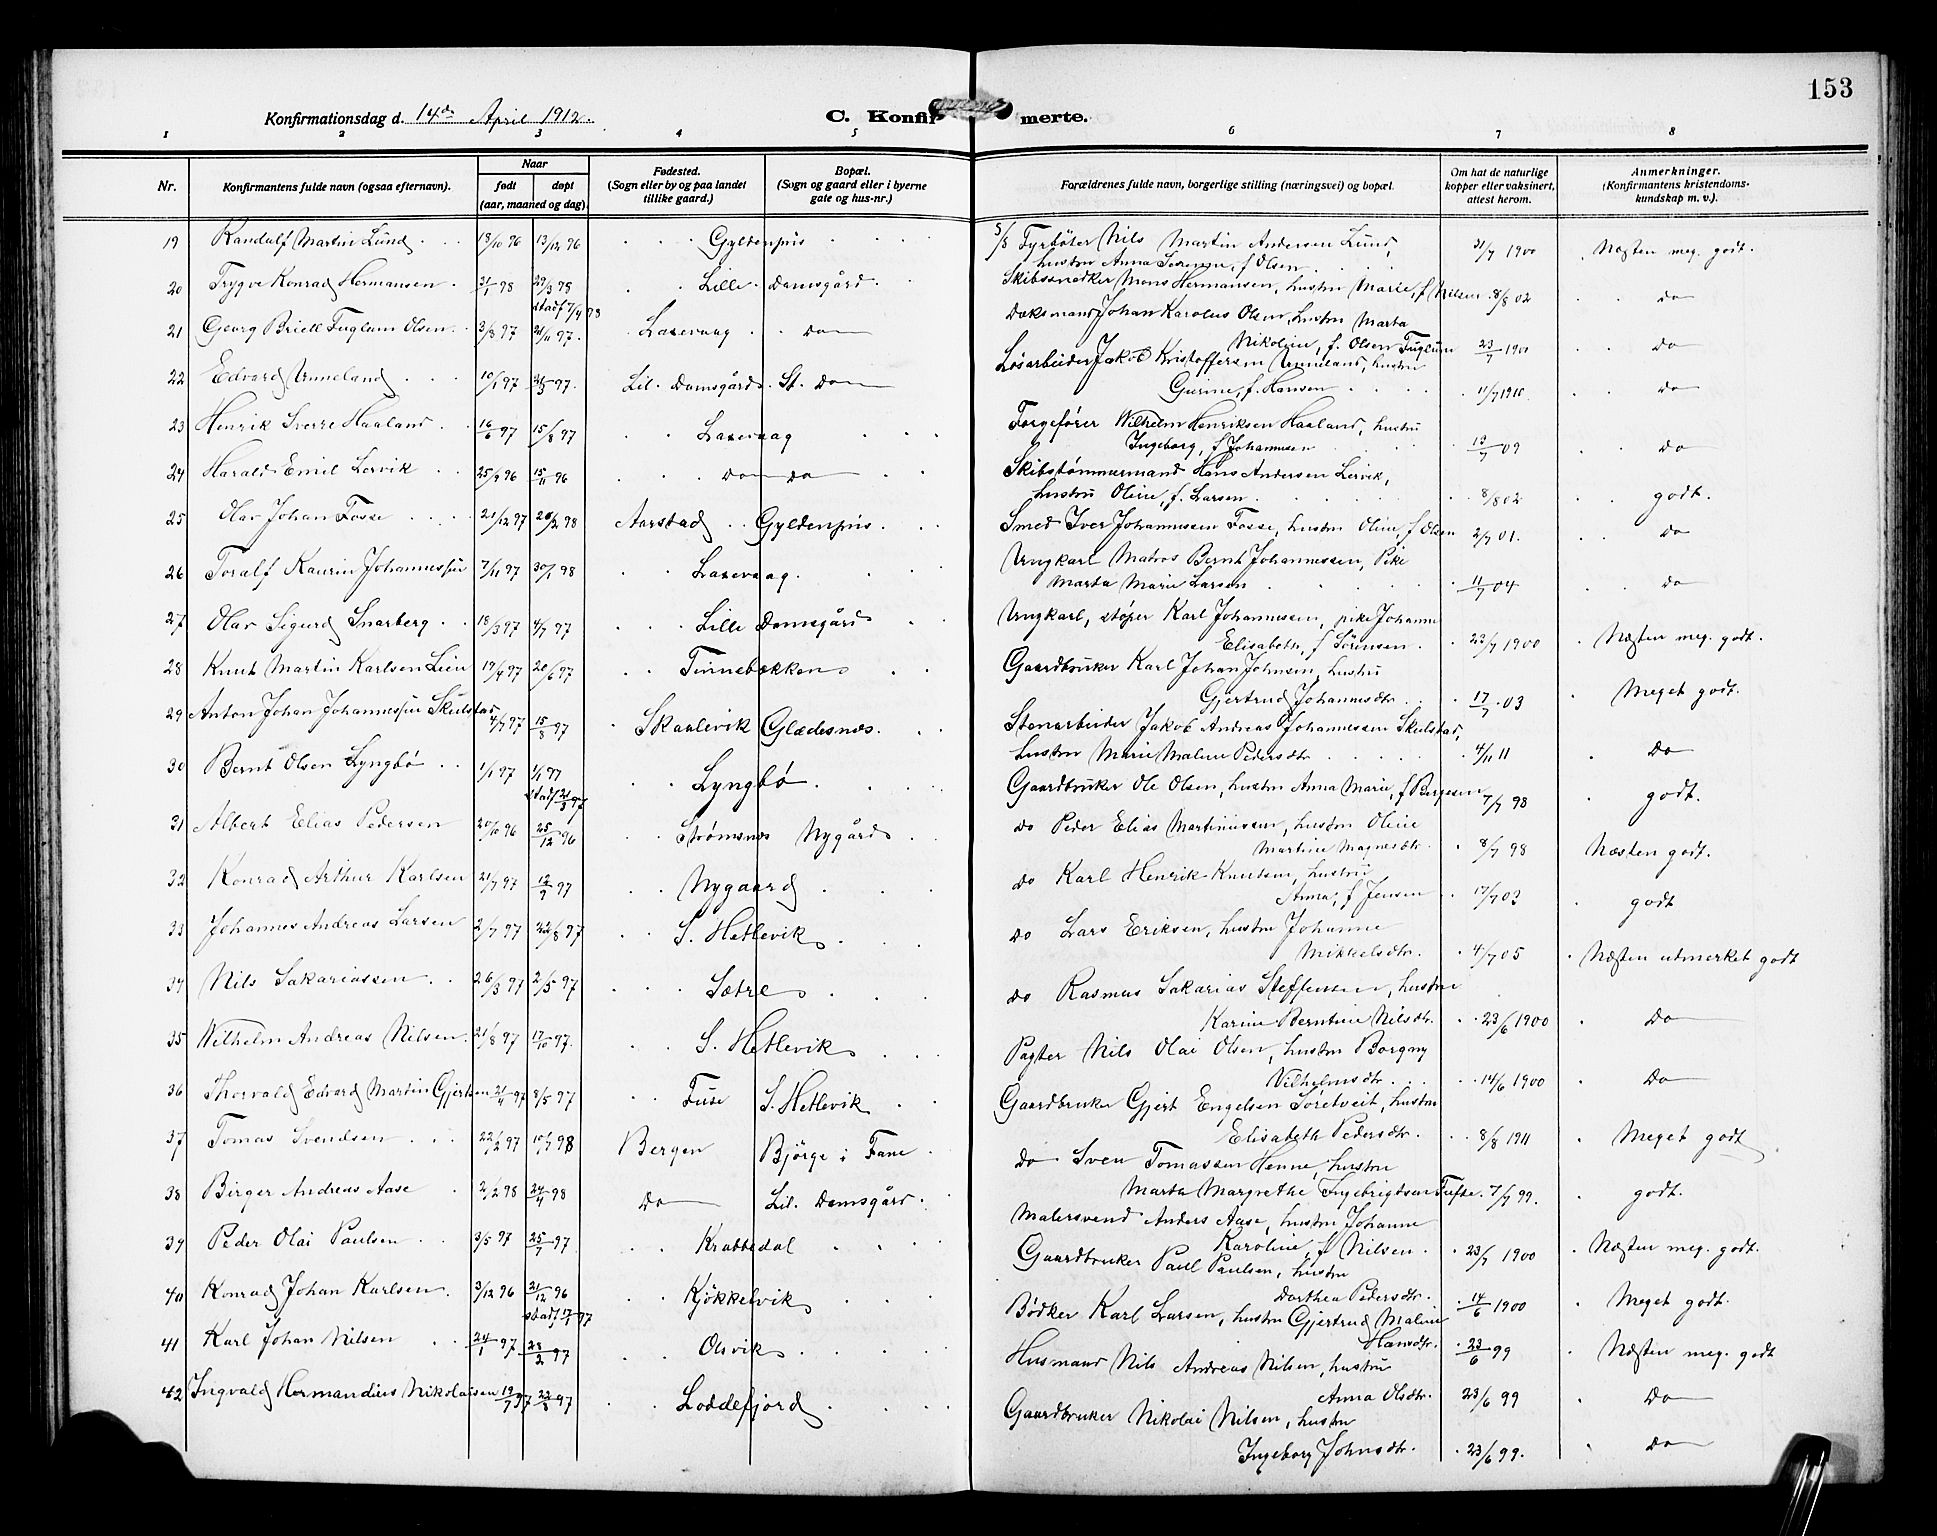 153
Konfirmationsdag d. 14de April 1912.
C. Konfirmerte.
1 2 3 4 5 6 7 8
Nr. Konfirmantens fulde navn (ogsaa efternavn). Naar født døpt (aar, maaned og dag). Fødested. (Sogn eller by og paa landet tillike gaard.) Bopæl. (Sogn og gaard eller i byerne gate og hus-nr.) Forældrenes fulde navn, borgerlige stilling (næringsvei) og bopæl. Om hat de naturlige kopper eller vaksinert, attest herom. Anmerkninger. (Konfirmantens kristendomskundskap m. v.).
19 Randulf Martin Lund 18/10 96 13/12 96 Gyldenpris Fyrbøter Nils Martin Andersen Lund, hustru Anna Severine, f Olsen 31/7 1900 Næsten meg. godt.
20 Trygve Konrad Hermansen 31/1 98 27/3 98 stadf 7/4 98 Lille Damsgård Skibssnedker Mons Hermansen, hustru Marie, f Nilsen 8/8 02 do
21 Georg Briell Fuglum Olsen 3/8 97 21/11 97. Laxevaag do Dæksmand Johan Karolus Olsen, hustru Marta Nikoline, f. Olsen Fuglum 23/7 1900 do
22 Edvard Unneland 10/1 97 31/3 97. Lil. Damsgård St. do Løsarbeider Jakob Kristoffersen Unneland, hustru Gurine, f. Hansen 11/7 1910 do
23 Henrik Sverre Haaland 16/6 97 15/8 97 Laxevaag Forgefører Wilhelm Henriksen Haaland, hustru Ingeborg, f Johannesen 13/7 09 do
24 Harald Emil Lervik 25/9 96 15/11 96 do do Skibstømmermand Hans Andersen Lervik, hustru Oline, f. Larsen 8/8 02 godt.
25 Olav Johan Fosse 21/12 97 20/2 98 Aarstad Gyldenpris Smed Iver Johannessen Fosse, hustru Oline, f Olsen 2/7 01. do
26 Toralf Kaurin Johannessen 7/11 97 30/1 98 Laxevaag. Ungkarl Matros Bernt Johannessen, Pike Marta Marie Larsen 11/7 04 do
27 Olav Sigurd Snarberg 18/3 97 4/7 97 Lille Damsgård Ungkarl, støper Karl Johannessen, pike Johanne Elisabeth, f Sørensen 23/7 1900 Næsten meg. godt.
28 Knut Martin Karlsen Lien 19/4 97 20/6 97 Tennebekken Gaardbruker Karl Johan Johnsen, hustru Gjertrud Johannesdtr. 17/7 03 Meget godt.
29 Anton Johan Johannessen Skulstad 4/7 97 15/8 97 Skaalevik Glædesnes. Stenarbeider Jakob Andreas Johannessen Skulstad, hustru Marie Malene Pedersdtr 4/11 11 Do
30 Bernt Olsen Lyngbø 1/1 97 1/1 97 stadf 21/3 97 Lyngbø. Gaardbruker Ole Olsen, hustru Anna Marie, f Bergesen 7/7 98 godt.
31 Albert Elias Pedersen 20/10 96 25/12 96 Strømsnes Nygård do Peder Elias Martinussen, hustru Oline Martine Magnesdtr. 8/7 98 Næsten godt.
32 Konrad Arthur Karlsen 21/7 97 12/9 97 Nygaard do Karl Henrik Knutsen, hustru Anna, f Jensen 17/7 03 godt
33 Johannes Andreas Larsen 2/7 97 22/8 97 S. Hetlevik do Lars Eriksen, hustru Johanne Mikkelsdtr. 4/7 05 Næsten utmerket godt
34 Nils Sakariassen 26/3 97 2/5 97 Sætre do Rasmus Sakarias Steffensen, hustru Karine Berntine Nilsdtr. 23/6 1900 Do
35 Wilhelm Andreas Nilsen 21/8 97 17/10 97. S. Hetlevik Pagter Nils Olai Olsen, hustru Borgny Vilhelmsdtr. 14/6 1900 Do
36 Thorvald Edvard Martin Gjertsen 21/4 97 8/5 97 Fuse S. Hetlevik Gaardbruker Gjert Engelsen Søretveit, hustru Elisabeth Pedersdtr. 8/8 1911 Meget godt
37 Tomas Svendsen 22/2 97 10/7 98 Bergen Bjørge i Fane Do Sven Tomassen Henne, hustru Marta Margrethe Ingebrigtsen Tufte. 7/7 99. godt.
38 Birger Andreas Aase 2/2 98 24/4 98 Do Lil. Damsgård. Malersvend Anders Aase, hustru Johanne Karoline, f Nilsen 23/7 1900 Næsten meg. godt.
39 Peder Olai Paulsen 3/5 97 25/7 97. Krabbedal Gaardbruker Paul Paulsen, hustru Dorthea Pedersdtr. 14/6 1900 Meget godt.
40 Konrad Johan Karlsen. 3/12 96 21/12 96 stadf 17/1 97 Kjøkkelvik Bødker Karl Larsen, hustru Gjertrud Maline Hansdtr. 23/6 99 Næsten meg. godt
41 Karl Johan Nilsen 24/1 97 28/2 97 Olsvik Husmand Nils Andreas Nilsen, hustru Anna Olsdtr. 23/6 99 Do
42 Ingvald Hermandius Nikolaisen 19/7 97 22/8 97 Loddefjord Gaardbruker Nikolai Nilsen, hustru Ingeborg Johnsdtr. 23/6 99. Do